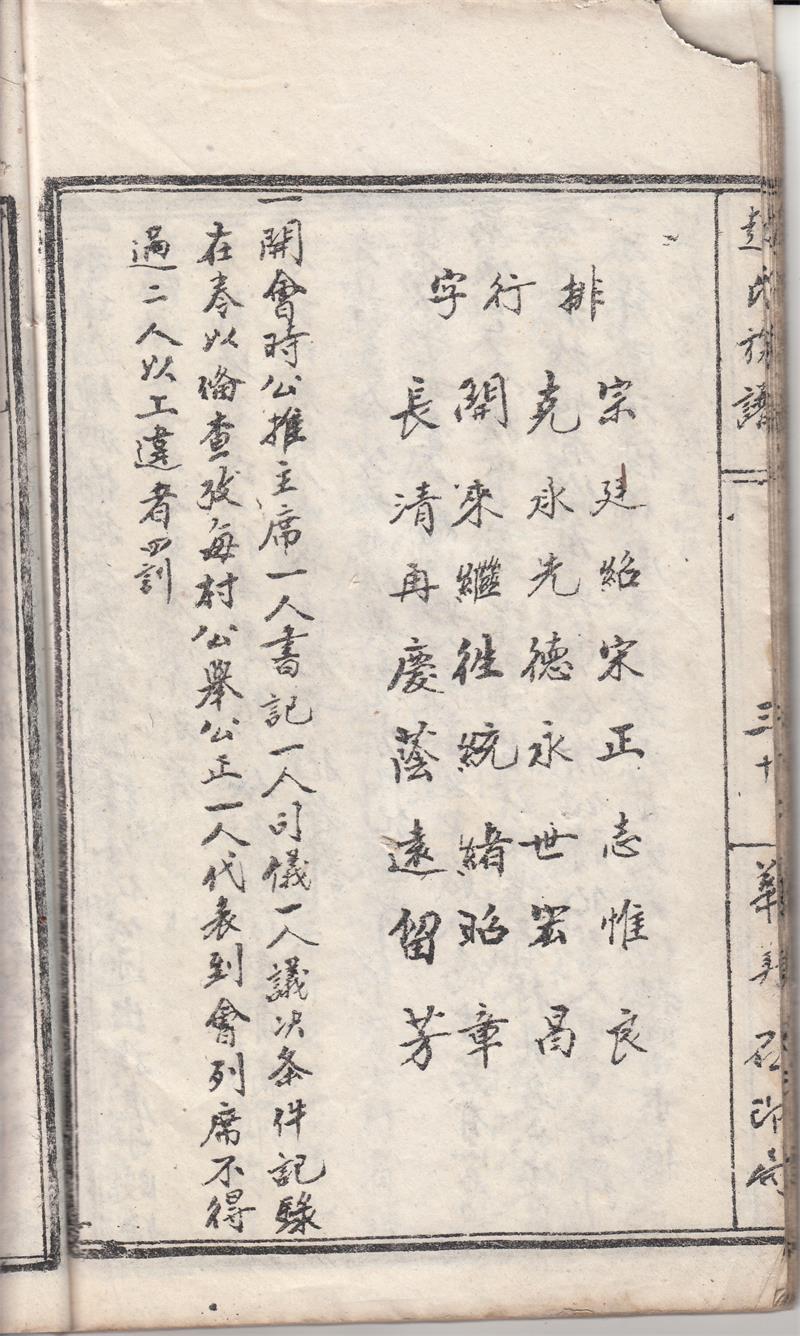 趙氏族譜
三十
華
石印局
排行字
宗廷紹宋正志惟良
克承先德永世宏昌
開来繼往統緒昭章
長清再慶蔭遠留芳
一開會時公推主席一人書記一人司儀一人議决条件記錄
在卷以俻查攷每村公舉公正一人代表到會列席不得
過二人以工違者四訓